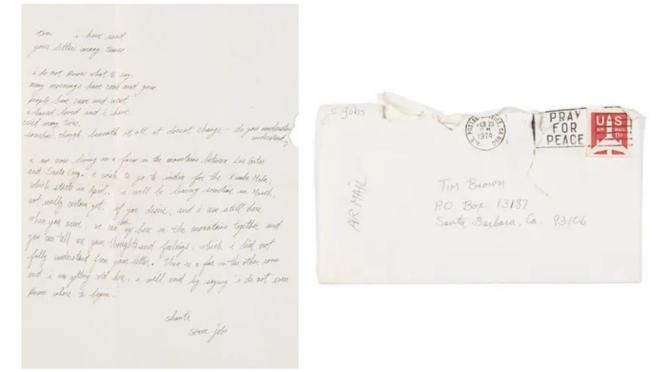 tim i have read
your letter many times
i do not know what to say.
many mornings have come and gone
people have came and went
i have loved and i have
cried many times.
somehow though beneath it all it doesnt change - do you
understand?
i am now living on a farm in the mountains between Los Gatos
and Santa Cruz. i wish to go to india for the Kumba Mela,
which starts in April. i will be leaving sometime in March,
not really certain yet. if you desire, and i am still here
when you arrive, we can be here in the mountains together and
you can tell me your thoughts and feelings which i did not
fully understand from your letter. There is a fire in the other room
and i am getting cold here. i will end by saying i do not even
know where to begin.
shanti
steve jobs
S Jobs
U.S. POSTAL
FEB 23
1974
PRAY
FOR
PEACE
USA
AIR MAIL
Tim Brown
P.O. Box 13187
Santa Barbara, Ca. 93106